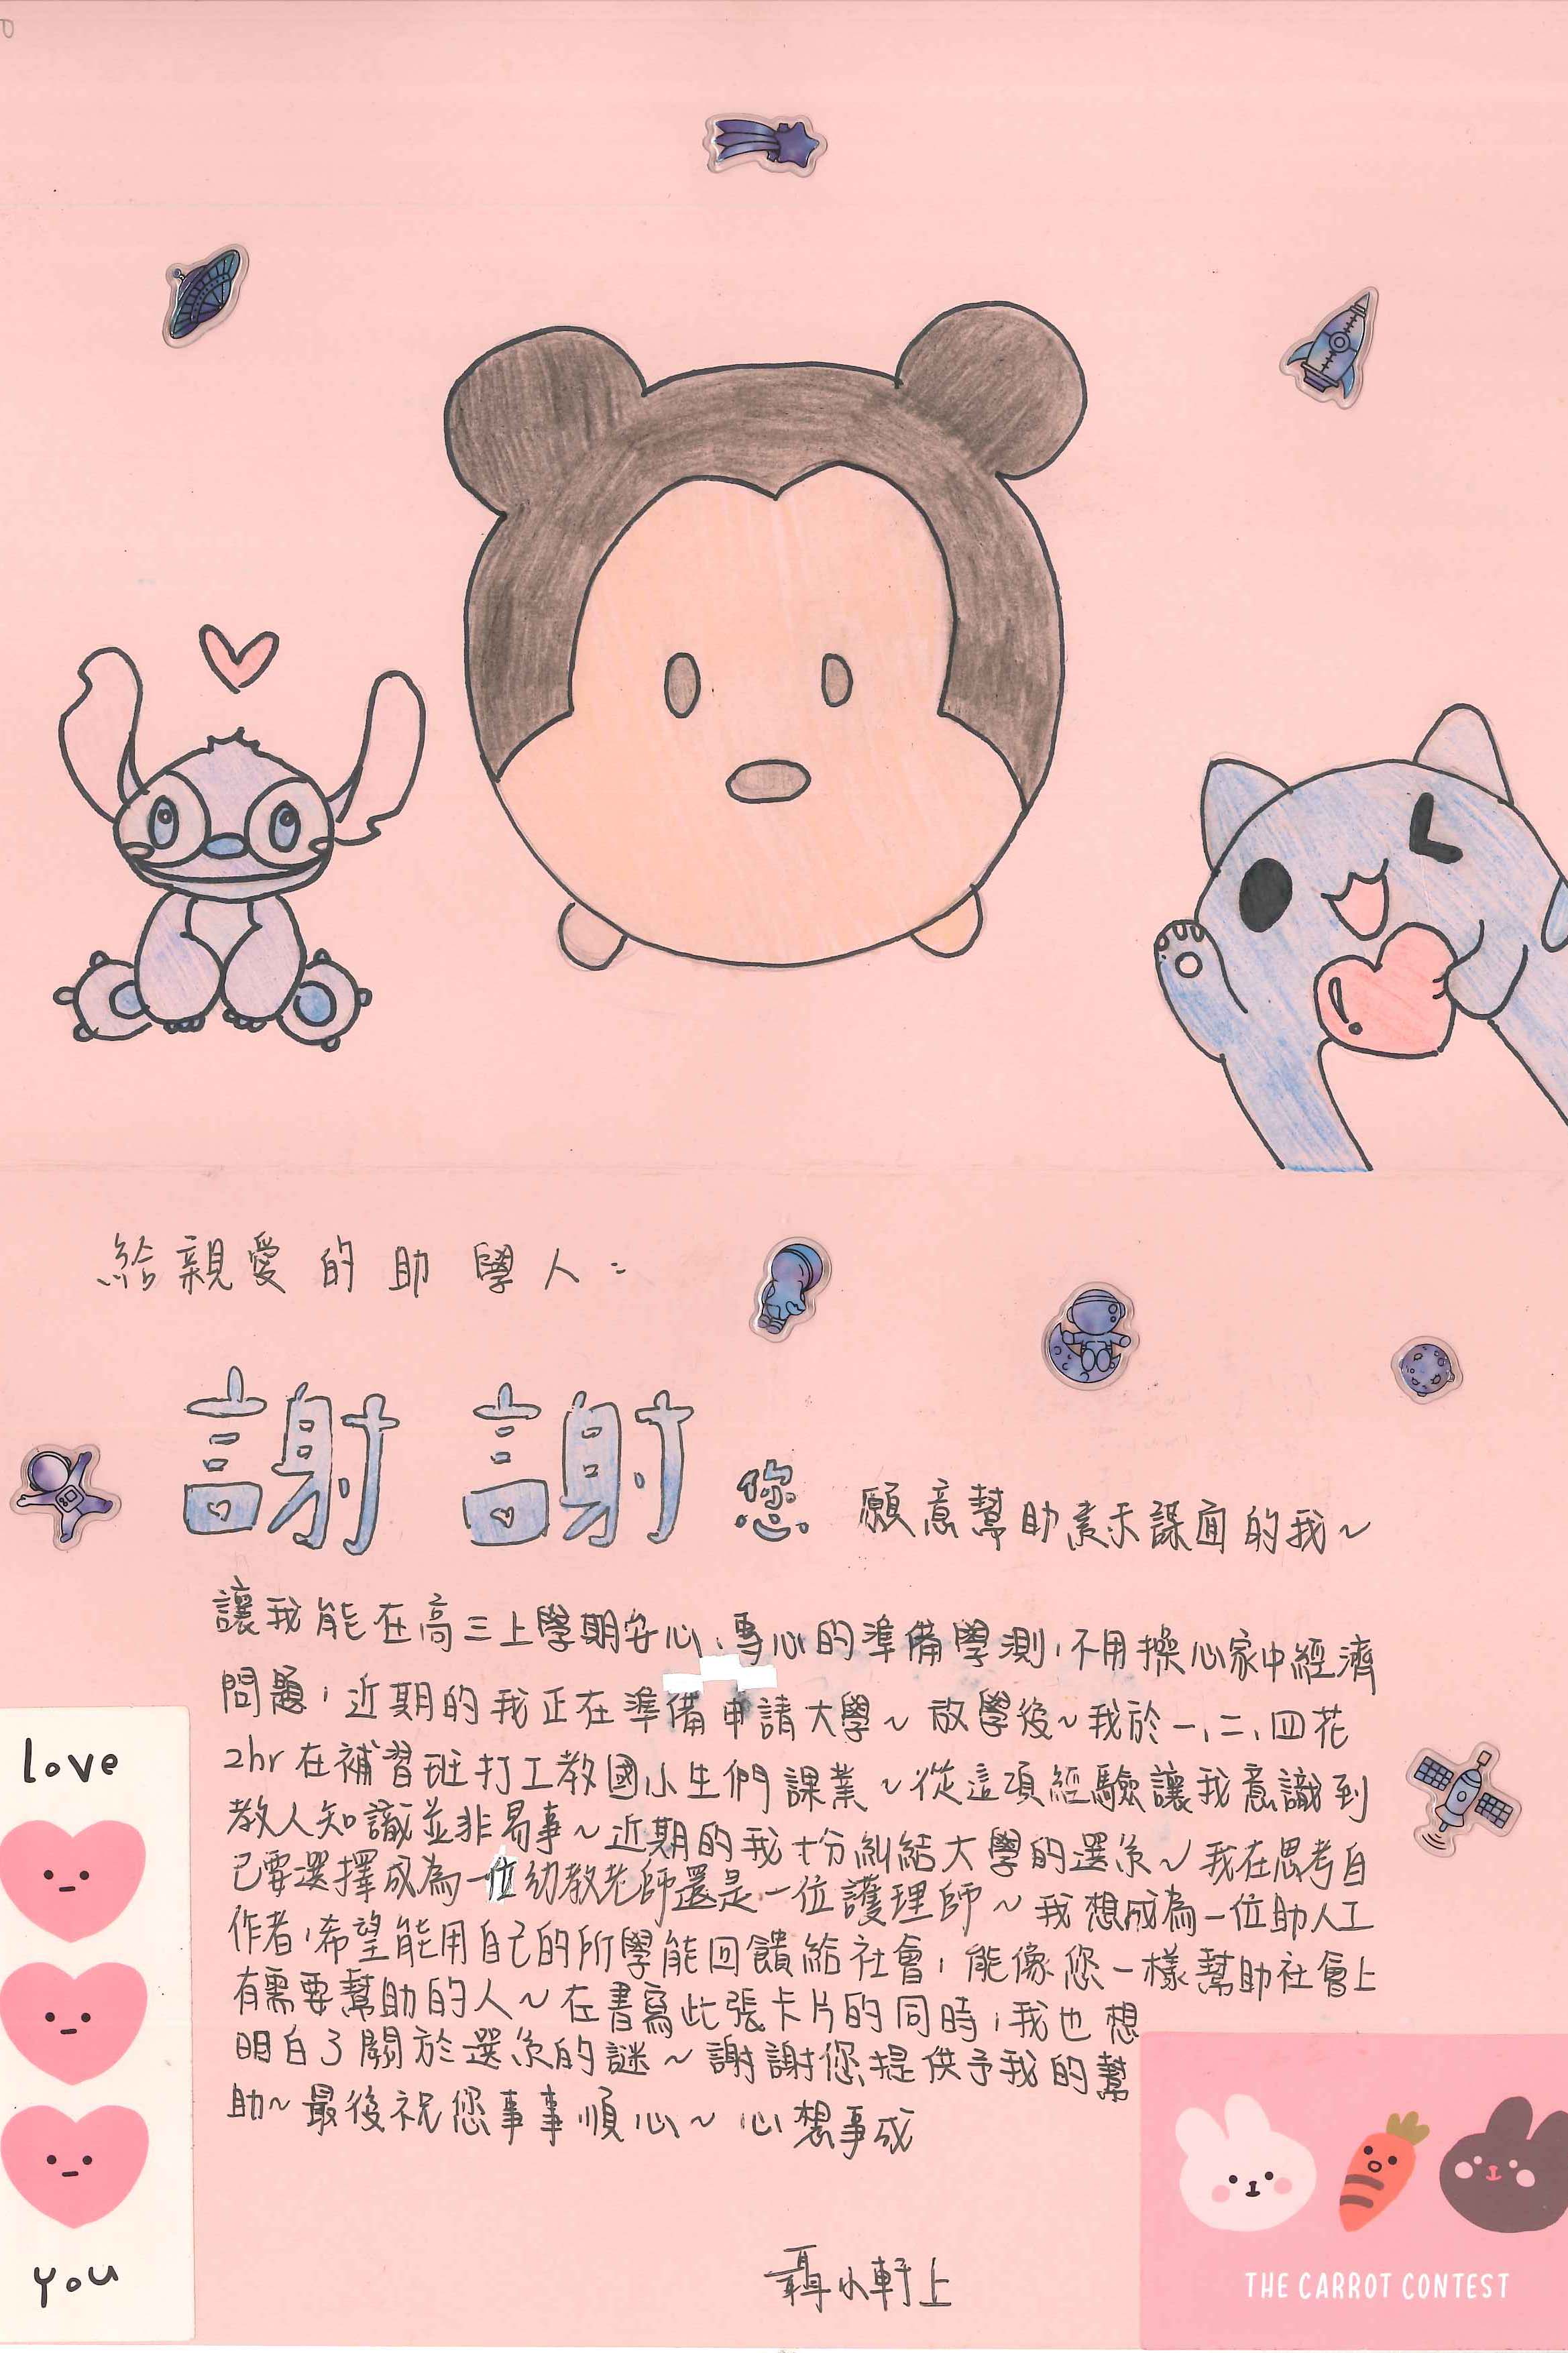 給親愛的助學人：
謝謝您 願意幫助素未謀面的我~
讓我能在高三上學期安心、專心的準備學測，不用操心家中經濟
問題，近期的我正在準備申請大學~放學後~我於一、二、四花
2hr在補習班打工教國小生們課業~從這項經驗讓我意識到
教人知識並非易事~近期的我十分糾結大學的選系~我在思考自
己要選擇成為一位幼教老師還是一位護理師~我想成為一位助人工
作者，希望能用自己的所學能回饋給社會，能像您一樣幫助社會上
有需要幫助的人~在書寫此張卡片的同時，我也想
明白了關於選系的謎~謝謝您提供予我的幫
助~最後祝您事事順心~心想事成
聶小軒上
love
you
THE CARROT CONTEST